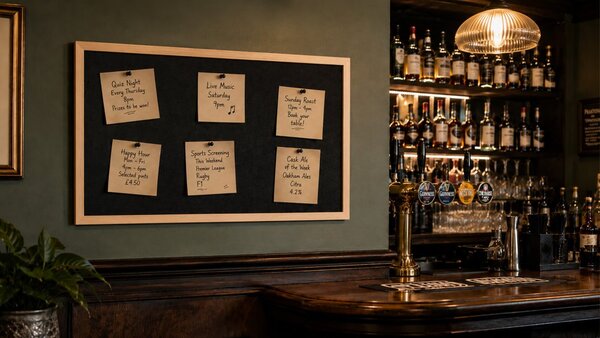 Quiz Night
Every Thursday
8pm
Prizes to be won!
Live Music
Saturday
9pm
Sunday Roast
12pm - 4pm
Book your
table!
Happy Hour
Mon - Fri
4pm - 6pm
Selected pints
£4.50
Sports Screening
This Weekend
Premier League
Rugby
F1
Cask Ale
of the Week
Oakham Ales
Citra
4.2%